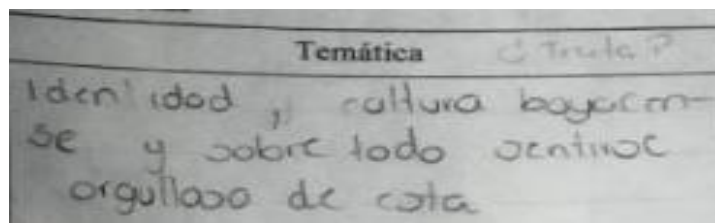 Temática
Identidad, cultura boyacen-
se y sobre todo sentirse
orgulloso de esta